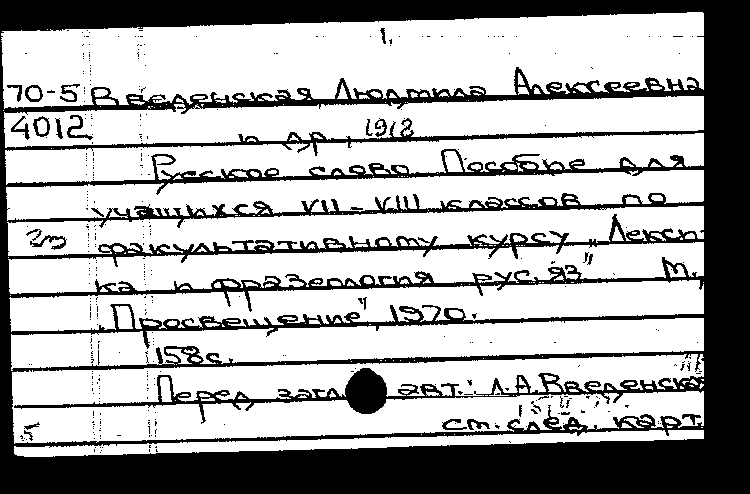 1.
70-5 Введенская Людмила Алексеевна
4012 и др., 1918
Русское слово. Пособие для
учащихся VII-VIII классов по
факультативному курсу „Лекси-
ка и фразеология рус. яз" М.,
„Просвещение", 1970.
158с.
Перед загл. авт.: Л.А.Введенская
ст. след. карт.
5